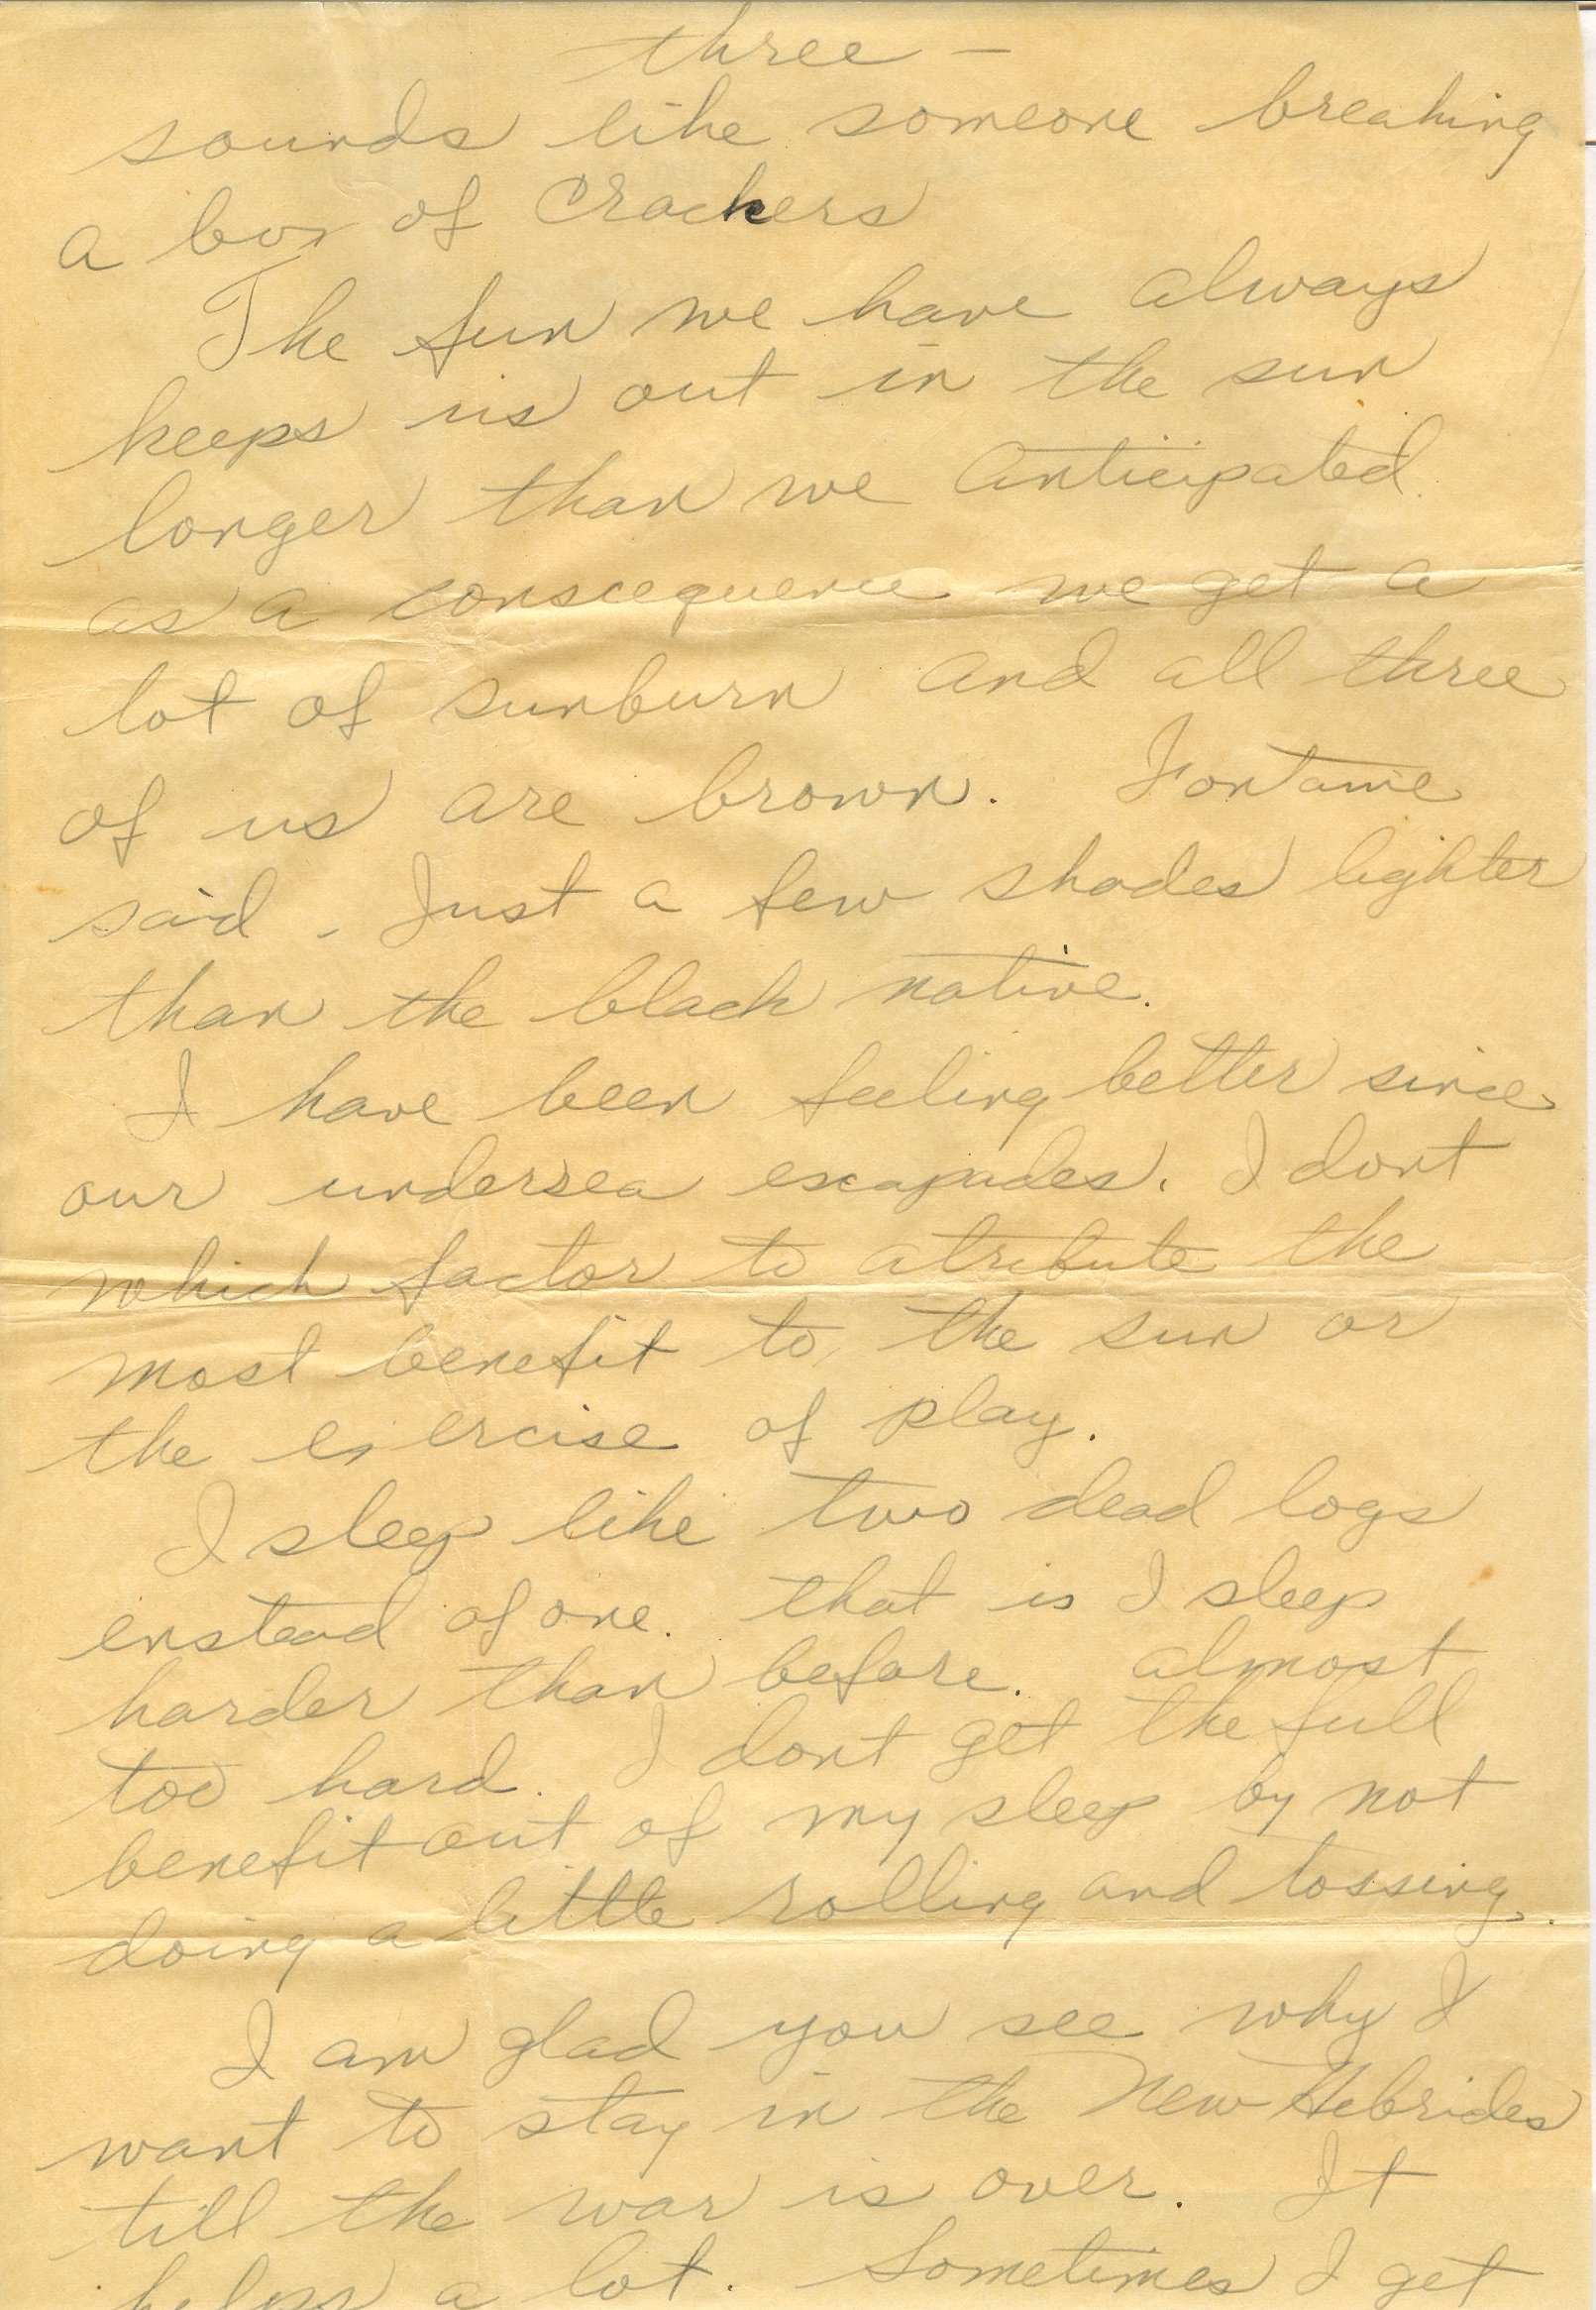 three –
sounds like someone breaking
a box of Crackers
The fun we have always
keeps us out in the sun
longer than we anticipated.
as a conscequence we get a
lot of sunburn and all three
of us are brown. Fontaine
said - Just a few shades lighter
than the black native.
I have been feeling better since
our undersea escapades. I dont
which factor to atribute the
most benefit to, the sun or
the exercise of play.
I sleep like two dead logs
enstead of one. that is I sleep
harder than before. almost
too hard. I dont get the full
benefit out of my sleep by not
doing a little rolling and tossing.
I am glad you see why I
want to stay in the New Hebrides
till the war is over. It
helps a lot. Sometimes I get